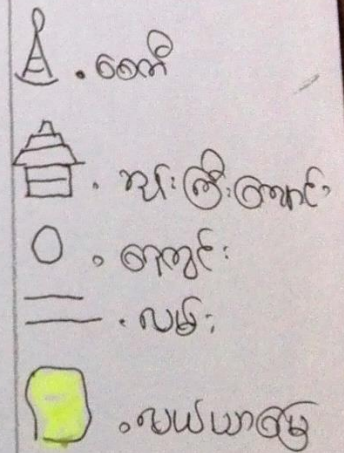 စေတီ
ဘုန်းကြီးကျောင်း
ရေတွင်း
လမ်း
လယ်ယာမြေ